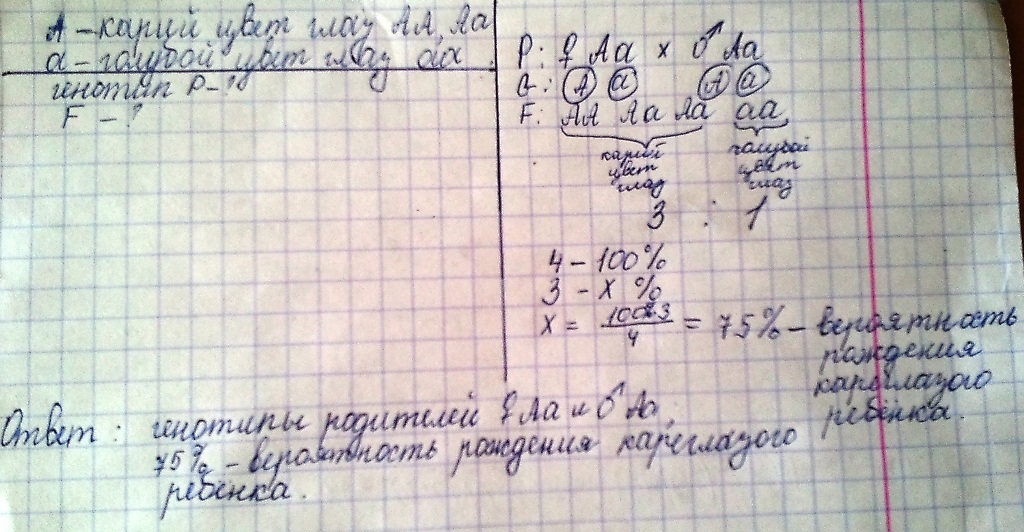 А – карий цвет глаз АА, Аа
а – голубой цвет глаз аа
генотип Р – ?
F – ?
Р: ♀ Аа × ♂ Аа
G: А а А а
F: АА Аа Аа аа
карий цвет глаз
голубой цвет глаз
3 : 1
4 – 100%
3 – х %
х = 100·3 / 4 = 75% – вероятность
рождения
кареглазого
ребёнка.
Ответ: генотипы родителей ♀ Аа и ♂ Аа,
75% – вероятность рождения кареглазого
ребёнка.